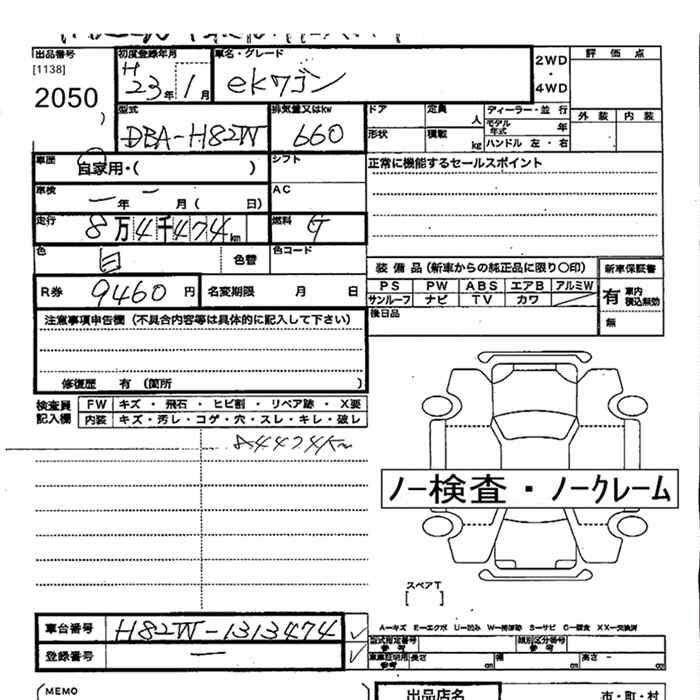 出品番号 初度登録年月 車名・グレード 2WD ・ 4WD 評価点
[1138] H 23年 1月 ekワゴン
2050
) 型式 排気量又はkw ドア 定員 人 ディーラー・並行 外装 内装
DBA-H82W 660 形状 積載 kg モデル年式 年
ハンドル 左・右
車歴 自家用・( ) シフト 正常に機能するセールスポイント
車検 ー年 ー月( 日) AC
走行 8万4千474km 燃料 G
色 白 色替 色コード
装備品(新車からの純正品に限り〇印) 新車保証書
R券 9460円 名変期限 月 日 PS PW ABS エアB アルミW 有 車内積込無効
サンルーフ ナビ TV カワ
後日品 無
注意事項申告欄(不具合内容等は具体的に記入して下さい)
修復歴 有(箇所 )
検査員記入欄 FW キズ・飛石・ヒビ割・リペア跡・X要
内装 キズ・汚レ・コゲ・穴・スレ・キレ・破レ
ノー検査・ノークレーム
スペアT
[ ]
車台番号 H82W-1313474
A―キズ E―エクボ U―凹み W―補修跡 S―サビ C―腐食 XX―交換済
型式指定番号 参考 類別区分番号 参考
登録番号 ー 車車証明用 参考 長さ cm 幅 cm 高さ cm
(MEMO 出品店名 市・町・村